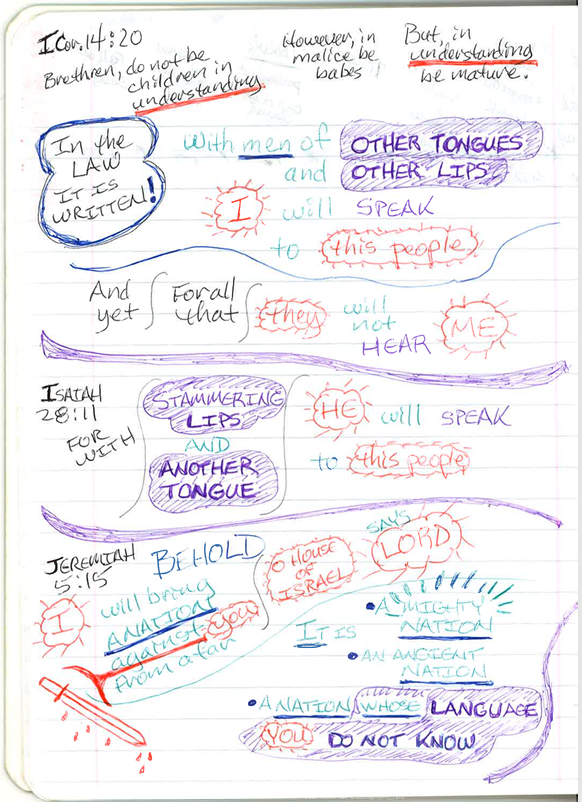 I Cor. 14:20
Brethren, do not be
children in
understanding
However, in
malice be
babes
But, in
understanding
be mature.
In the
LAW
IT IS
WRITTEN!
with men of OTHER TONGUES
and OTHER LIPS
I will SPEAK
to this people
And
yet
For all
that
they
will
not
HEAR
ME
ISAIAH
28:11
FOR
WITH
STAMMERING
LIPS
AND
ANOTHER
TONGUE
HE will SPEAK
to this people
JEREMIAH
5:15
BEHOLD
I
will bring
A NATION
against you
from afar
O HOUSE
OF
ISRAEL
SAYS
LORD
IT IS
•A MIGHTY
NATION
•AN ANCIENT
NATION
•A NATION WHOSE LANGUAGE
YOU DO NOT KNOW